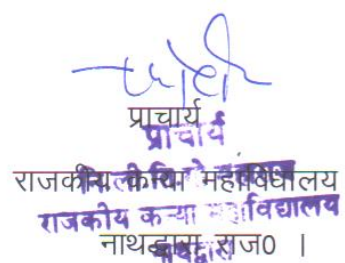 प्राचार्य
प्राचार्य
राजकीय कन्या महाविद्यालय
राजकीय कन्या महाविद्यालय
नाथद्वारा राज0 ।